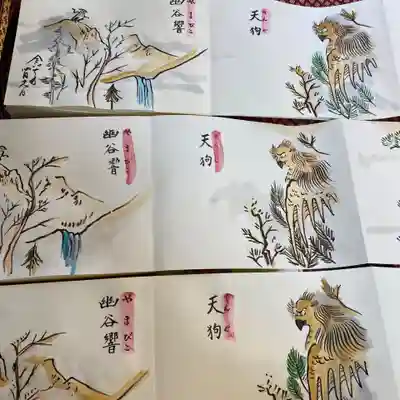 天狗
てんぐ
幽谷響
やまびこ
天狗
てんぐ
幽谷響
やまびこ
天狗
てんぐ
幽谷響
やまびこ